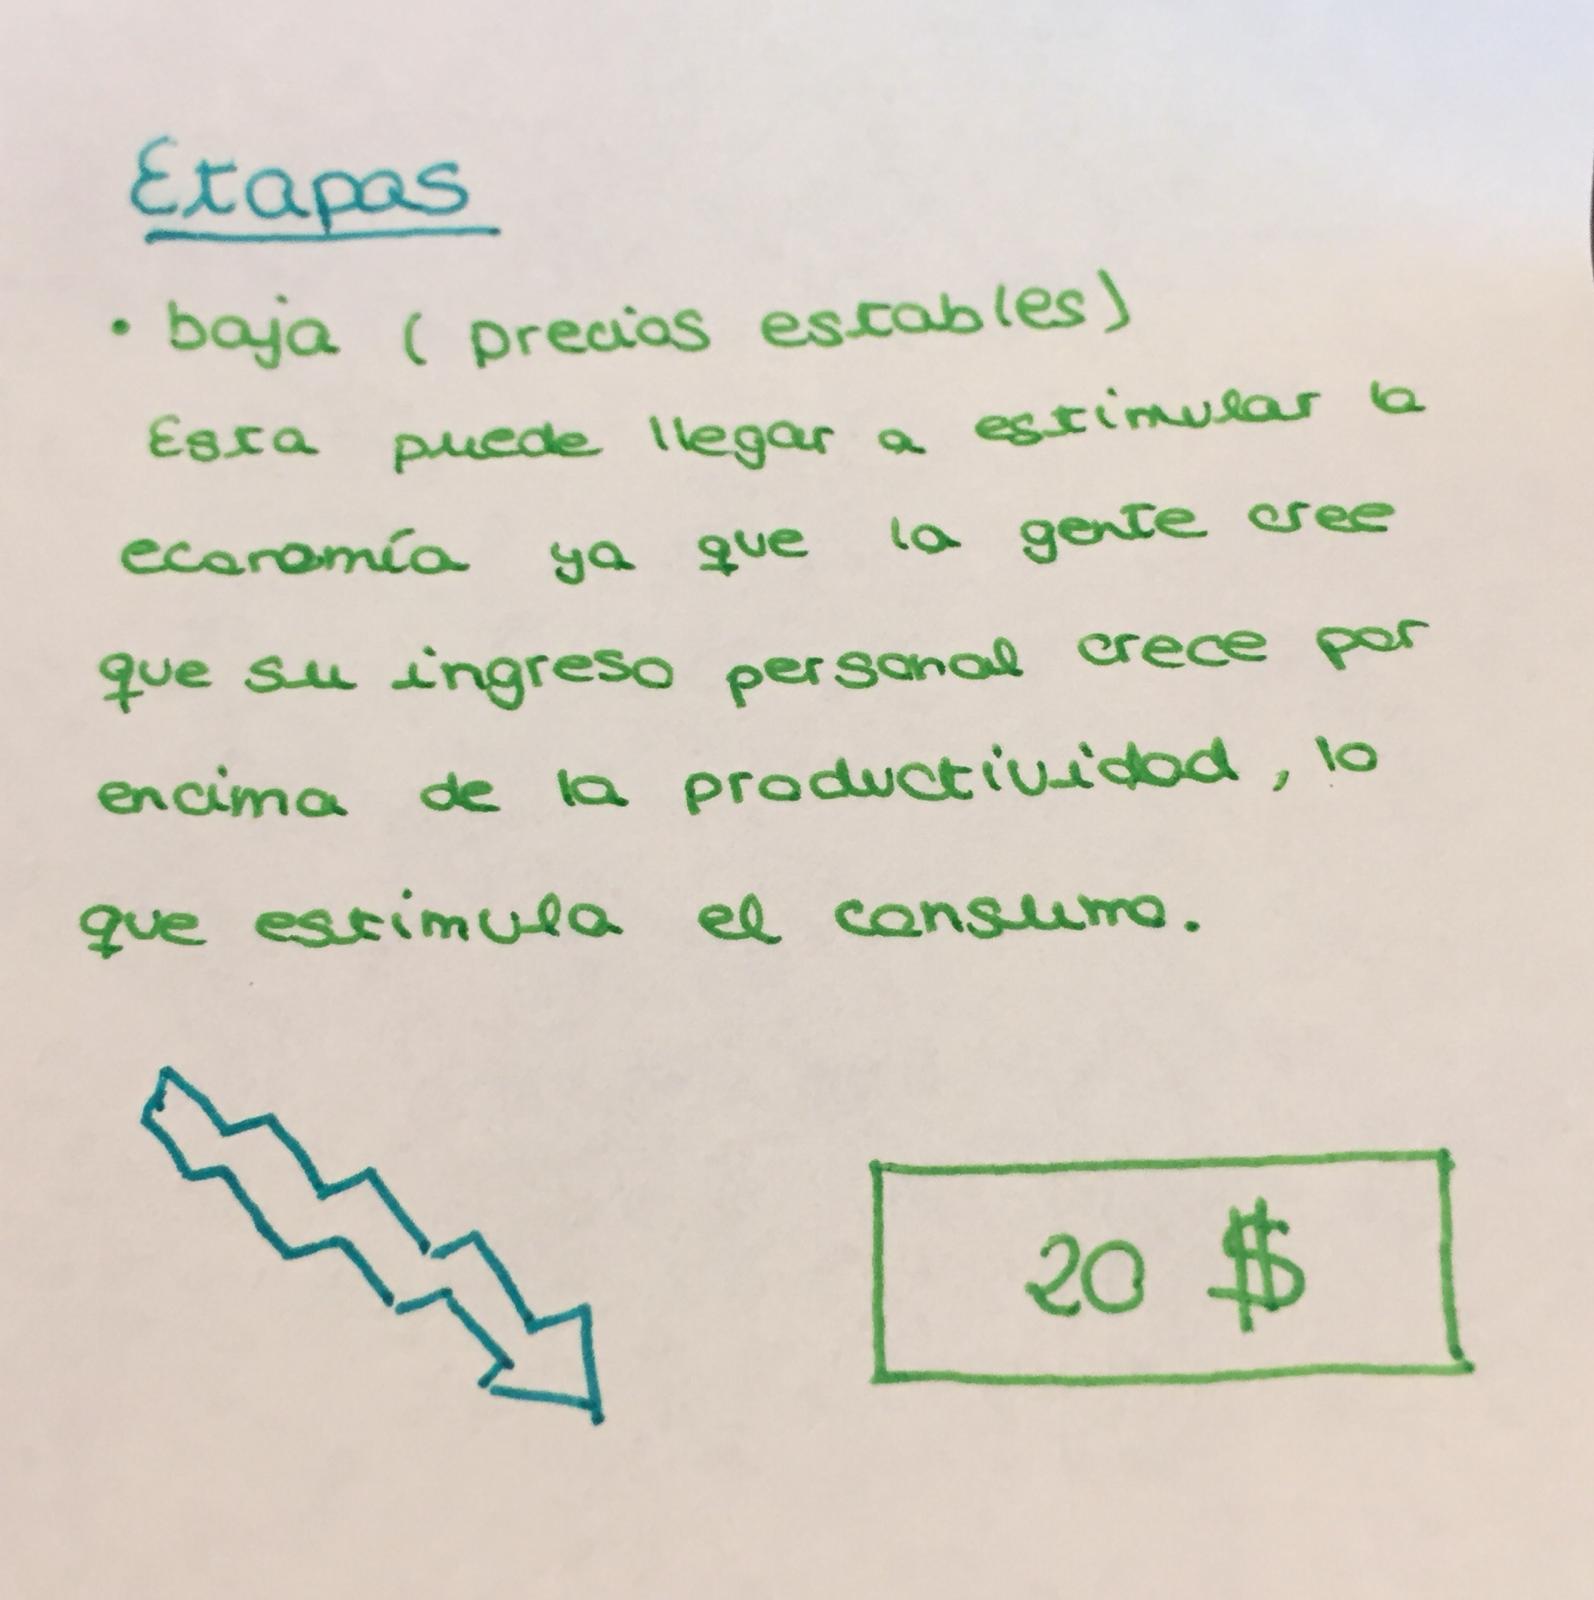 Etapas
• baja (precios estables)
Esta puede llegar a estimular la
economía ya que la gente cree
que su ingreso personal crece por
encima de la productividad, lo
que estimula el consumo.
20 $